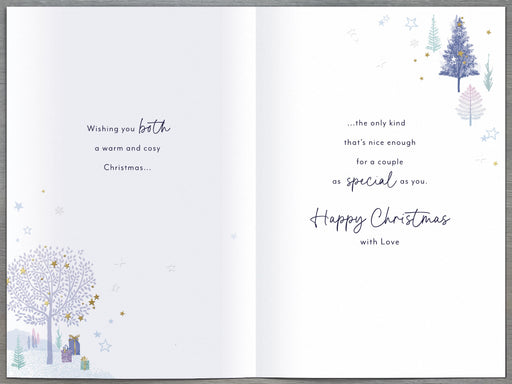 Wishing you both
a warm and cosy
Christmas...
...the only kind
that's nice enough
for a couple
as special as you.
Happy Christmas
with Love